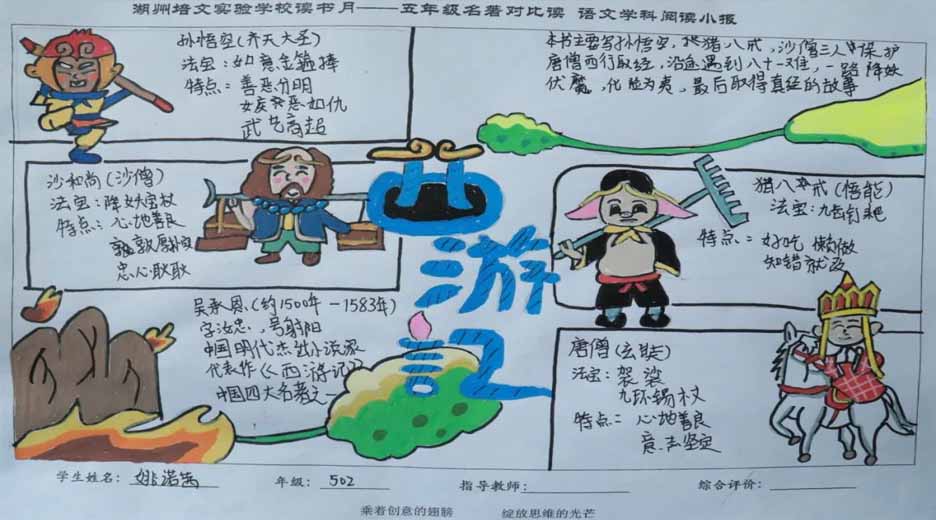 湖州培文实验学校读书月——五年级名著对比读 语文学科阅读小报
孙悟空(齐天大圣)
法宝：如意金箍棒
特点：善恶分明
嫉恶如仇
武艺高超
本书主要写孙悟空，猪八戒，沙僧三人保护
唐僧西行取经，沿途遇到八十一难，一路降妖
伏魔，化险为夷，最后取得真经的故事
沙和尚(沙僧)
法宝：降妖宝杖
特点：心地善良
敦厚
忠心耿耿
西游記
猪八戒(悟能)
法宝：九齿钉耙
特点：好吃 懒做
知错就改
吴承恩(约1500年－1583年)
字汝忠，号射阳
中国明代杰出小说家
代表作《西游记》
中国四大名著之一
唐僧(玄奘)
法宝：袈裟
九环锡杖
特点：心地善良
意志坚定
学生姓名：姚诺茜 年级：502 指导教师： 综合评价：
乘着创意的翅膀 绽放思维的光芒